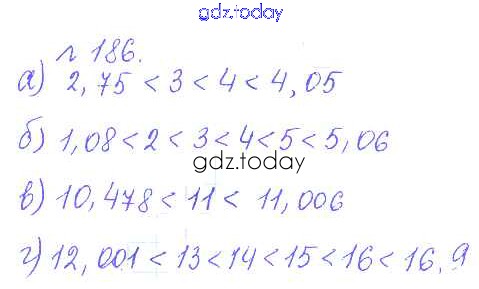 gdz.today
№ 186.
а) 2,75 < 3 < 4 < 4,05
б) 1,08 < 2 < 3 < 4 < 5 < 5,06
gdz.today
в) 10,478 < 11 < 11,006
г) 12,001 < 13 < 14 < 15 < 16 < 16,9